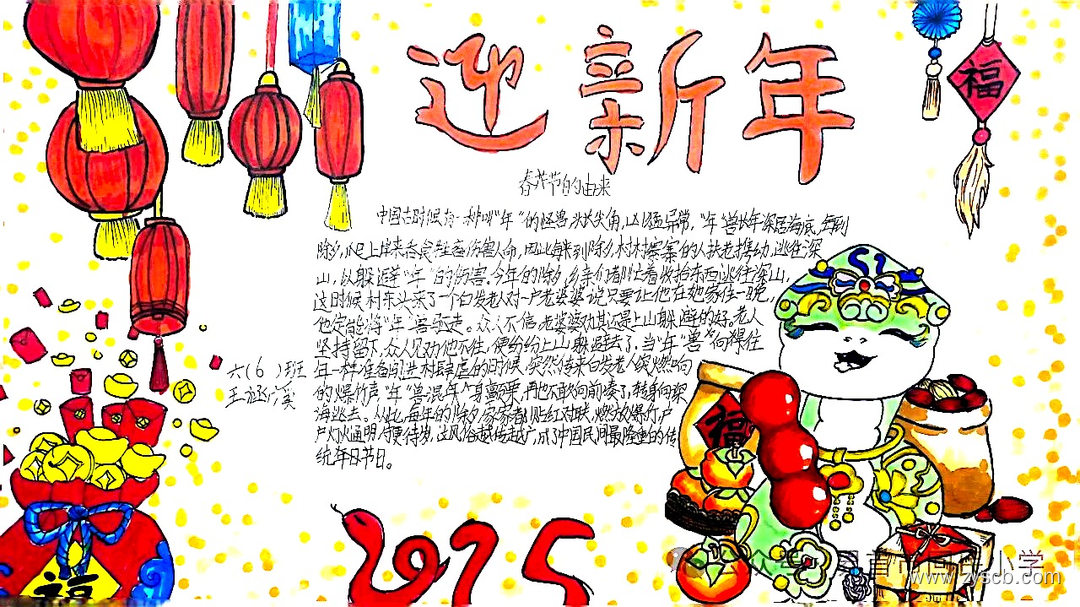 迎新年
福
春节的由来
中国古时候有一种叫"年"的怪兽,头长尖角,凶猛异常,"年"兽长年深居海底,每到
除夕,爬上岸来吞食牲畜伤害人命,因此每到除夕,村村寨寨的人扶老携幼,逃往深
山,以躲避"年"的伤害。今年的除夕,乡亲们都忙着收拾东西逃往深山,
这时候村东头来了一个白发老人对一户老婆婆说只要让他在她家住一晚,
他定能将"年"兽驱走。众人不信,老婆婆劝其还是上山躲避的好,老人
坚持留下,众人见劝他不住,便纷纷上山躲避去了。当"年"兽像往
年一样准备闯进村肆虐的时候,突然传来白发老人烧燃响
的爆竹声,"年"兽混身颤栗,再也不敢向前凑了,转身向深
海逃去。从此,每年的除夕,家家都贴红对联,燃放爆竹,户
户灯火通明,守更待岁。这风俗越传越广,成了中国民间最隆重的传
统年日节日。
六(6)班
王涵溪
福
福
2025
www.zyscb.com